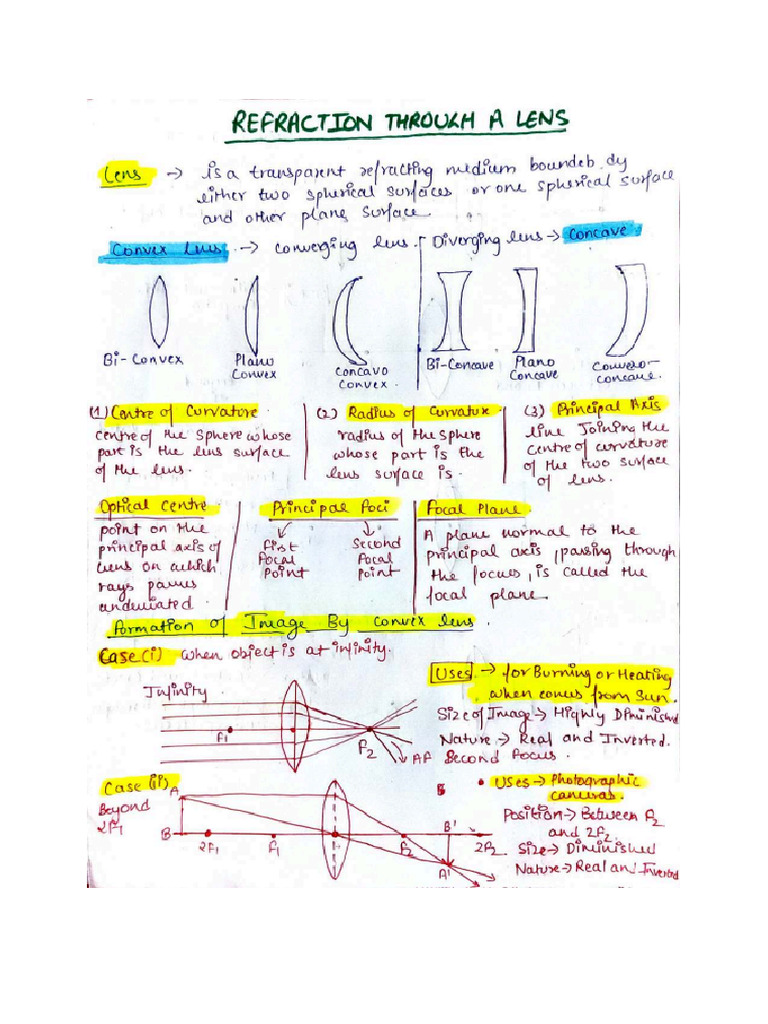 REFRACTION THROUGH A LENS
Lens → is a transparent refracting medium bounded by
either two spherical surfaces or one spherical surface
and other plane surface.
Convex Lens → converging lens.
Diverging lens → Concave
Bi-Convex
Plano
Convex
Concavo
Convex.
Bi-Concave
Plano
Concave
Convexo-
concave.
(1) Centre of Curvature.
centre of the sphere whose
part is the lens surface
of the lens.
(2) Radius of Curvature
radius of the sphere
whose part is the
lens surface is.
(3) Principal Axis
line Joining the
centre of curvature
of the two surface
of lens.
Optical Centre
point on the
principal axis of
lens on which
rays passes
undeviated.
Principal Foci
First
Focal
Point
Second
Focal
Point
Focal Plane
A plane normal to the
principal axis, passing through
the focus, is called the
focal plane.
Formation of Image By convex lens.
Case (i) when object is at infinity.
Infinity
F1
F2
Uses → for Burning or Heating
when comes from Sun.
Size of Image → Highly Diminished
Nature → Real and Inverted.
At Second Focus.
Case (ii)
Beyond
2F1
A
B
2F1
F1
F2
B'
2F2
A'
• Uses → Photographic
cameras.
Position → Between F2
and 2F2
Size → Diminished
Nature → Real and Inverted